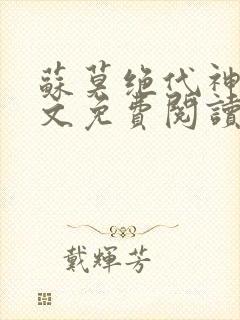 蘇莫絕代神
文免費閱讀
戴輝芳